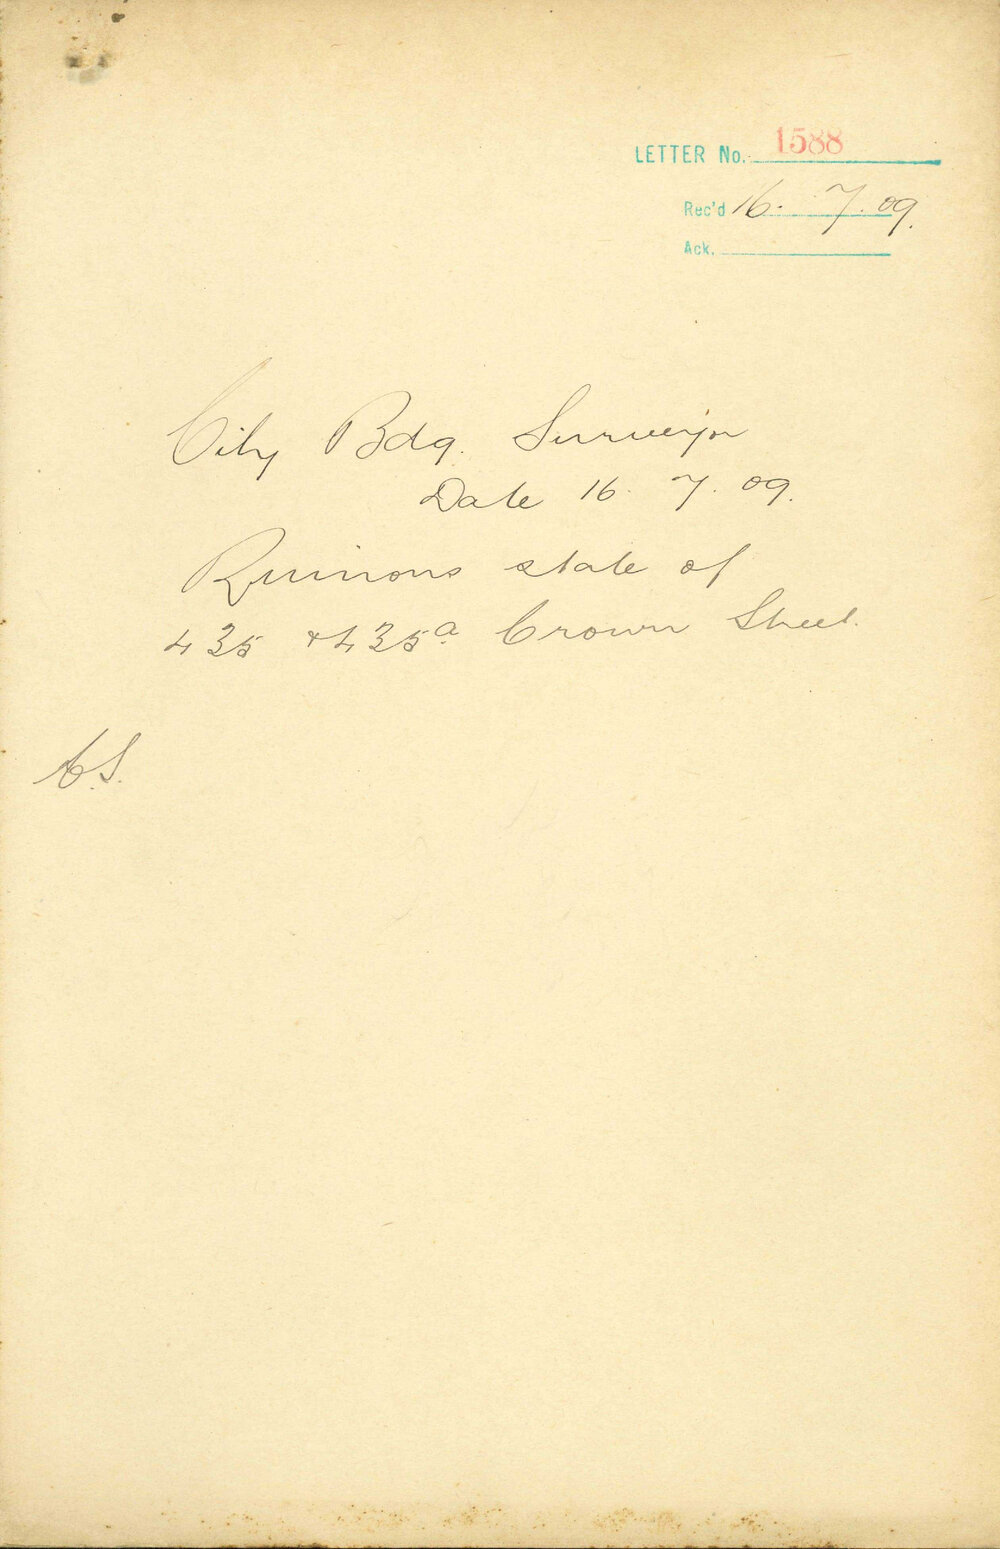 LETTER No. 1588
Rec'd 16. 7. 09.
Ack.
City Bdg. Surveyor
Date 16. 7. 09.
Ruinous state of
435 & 435a Crown Street.
C.S.